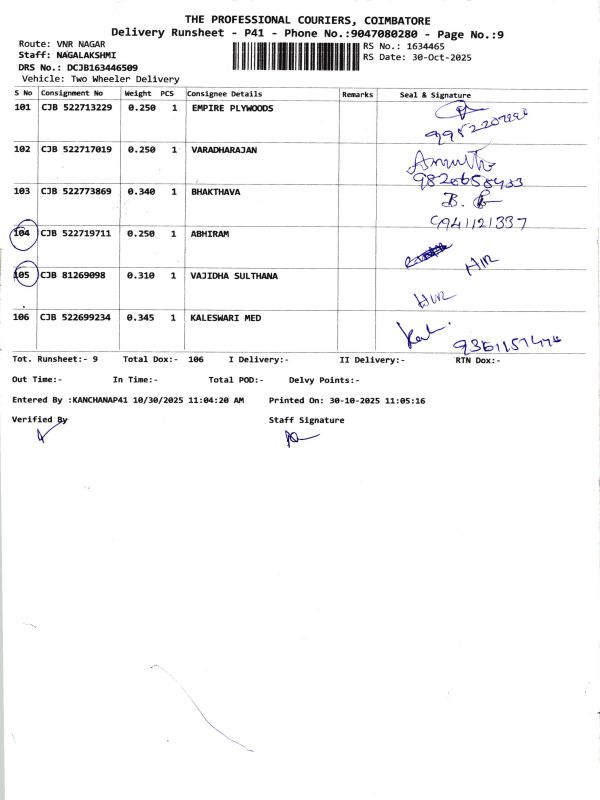 THE PROFESSIONAL COURIERS, COIMBATORE
Delivery Runsheet - P41 - Phone No.:9047080280 - Page No.:9
Route: VNR NAGAR RS No.: 1634465
Staff: NAGALAKSHMI RS Date: 30-Oct-2025
DRS No.: DCJB163446509
Vehicle: Two Wheeler Delivery
S No Consignment No Weight PCS Consignee Details Remarks Seal & Signature
101 CJB 522713229 0.250 1 EMPIRE PLYWOODS
102 CJB 522717019 0.250 1 VARADHARAJAN
103 CJB 522773869 0.340 1 BHAKTHAVA
9941121337
104 CJB 522719711 0.250 1 ABHIRAM
105 CJB 81269098 0.310 1 VAJIDHA SULTHANA
106 CJB 522699234 0.345 1 KALESWARI MED
Tot. Runsheet:- 9 Total Dox:- 106 I Delivery:- II Delivery:- RTN Dox:-
Out Time:- In Time:- Total POD:- Delvy Points:-
Entered By :KANCHANAP41 10/30/2025 11:04:20 AM Printed On: 30-10-2025 11:05:16
Verified By Staff Signature